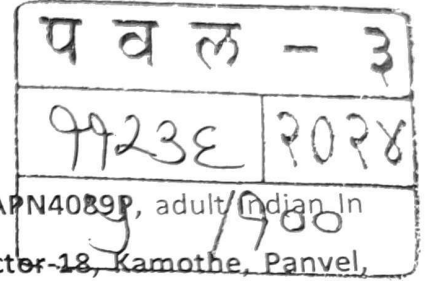 पवल - ३
११२३६ २०२४
APN4089P, adult Indian In
५ /१००
ctor-18, Kamothe, Panvel,